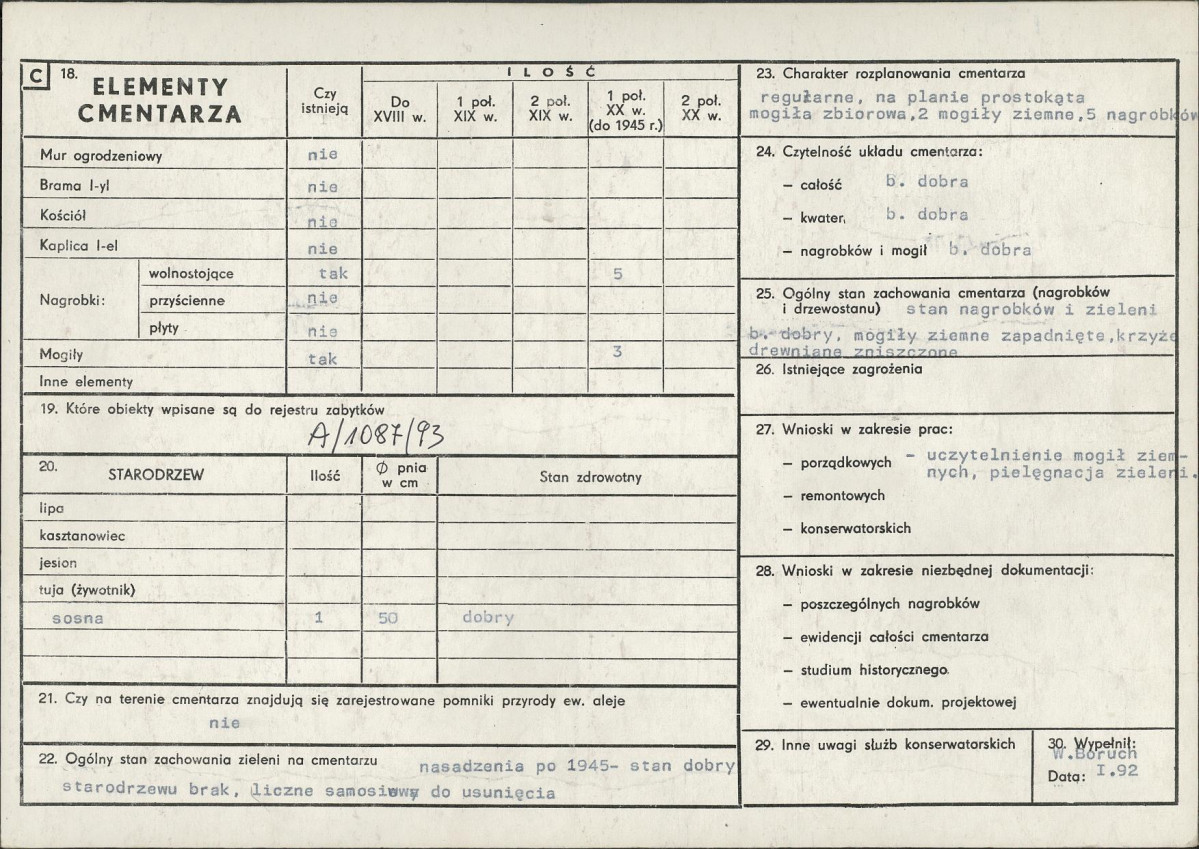 C 18. ELEMENTY CMENTARZA
Czy istnieją
ILOŚĆ
Do XVIII w.
1 poł. XIX w.
2 poł. XIX w.
1 poł. XX w. (do 1945 r.)
2 poł. XX w.
Mur ogrodzeniowy nie
Brama l-yl nie
Kościół nie
Kaplica l-el nie
Nagrobki:
wolnostojące tak 5
przyścienne nie
płyty nie
Mogiły tak 3
Inne elementy
19. Które obiekty wpisane są do rejestru zabytków
A/1087/93
20. STARODRZEW Ilość Ø pnia w cm Stan zdrowotny
lipa
kasztanowiec
jesion
tuja (żywotnik)
sosna 1 50 dobry
21. Czy na terenie cmentarza znajdują się zarejestrowane pomniki przyrody ew. aleje
nie
22. Ogólny stan zachowania zieleni na cmentarzu nasadzenia po 1945- stan dobry
starodrzewu brak, liczne samosiewy do usunięcia
23. Charakter rozplanowania cmentarza
regularne, na planie prostokąta
mogiła zbiorowa,2 mogiły ziemne,5 nagrobków
24. Czytelność układu cmentarza:
– całość b. dobra
– kwater, b. dobra
– nagrobków i mogił b. dobra
25. Ogólny stan zachowania cmentarza (nagrobków
i drzewostanu) stan nagrobków i zieleni
b. dobry, mogiły ziemne zapadnięte,krzyże
drewniane zniszczone
26. Istniejące zagrożenia
27. Wnioski w zakresie prac:
– porządkowych - uczytelnienie mogił ziem-
nych, pielęgnacja zieleni.
– remontowych
– konserwatorskich
28. Wnioski w zakresie niezbędnej dokumentacji:
– poszczególnych nagrobków
– ewidencji całości cmentarza
– studium historycznego
– ewentualnie dokum. projektowej
29. Inne uwagi służb konserwatorskich
30. Wypełnił:
W.Boruch
Data: I.92